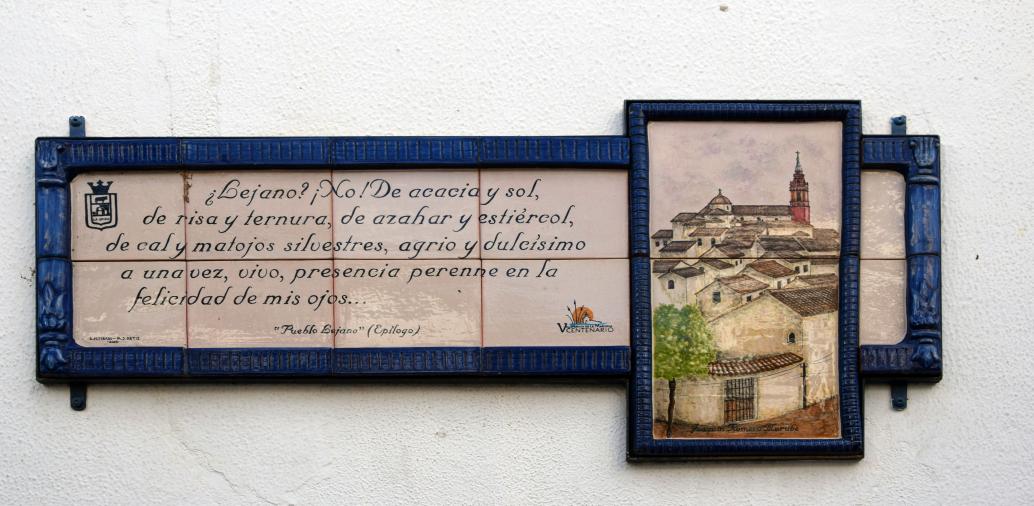 ¿Lejano? ¡No! De acacia y sol,
de risa y ternura, de azahar y estiércol,
de cal y matojos silvestres, agrio y dulcísimo
a una vez, vivo, presencia perenne en la
felicidad de mis ojos...
"Pueblo Lejano" (Epílogo)
V CENTENARIO
Joaquín Romero Murube